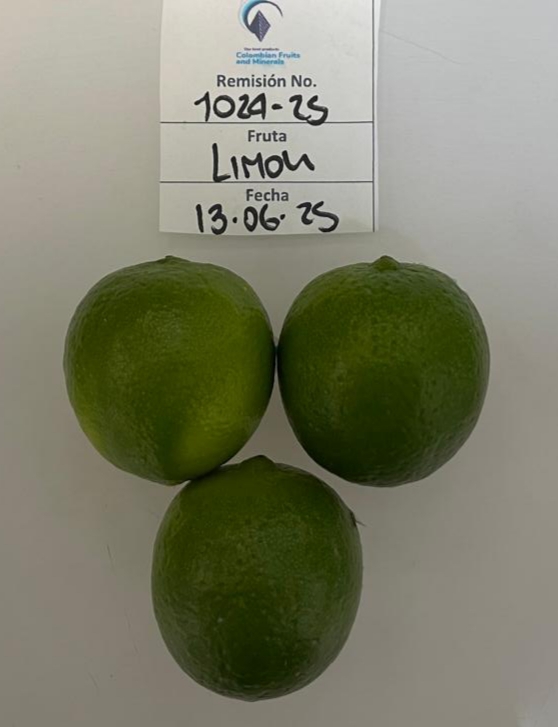 Colombian Fruits
and Minerals
Remisión No.
1029-25
Fruta
LIMON
Fecha
13.06.25